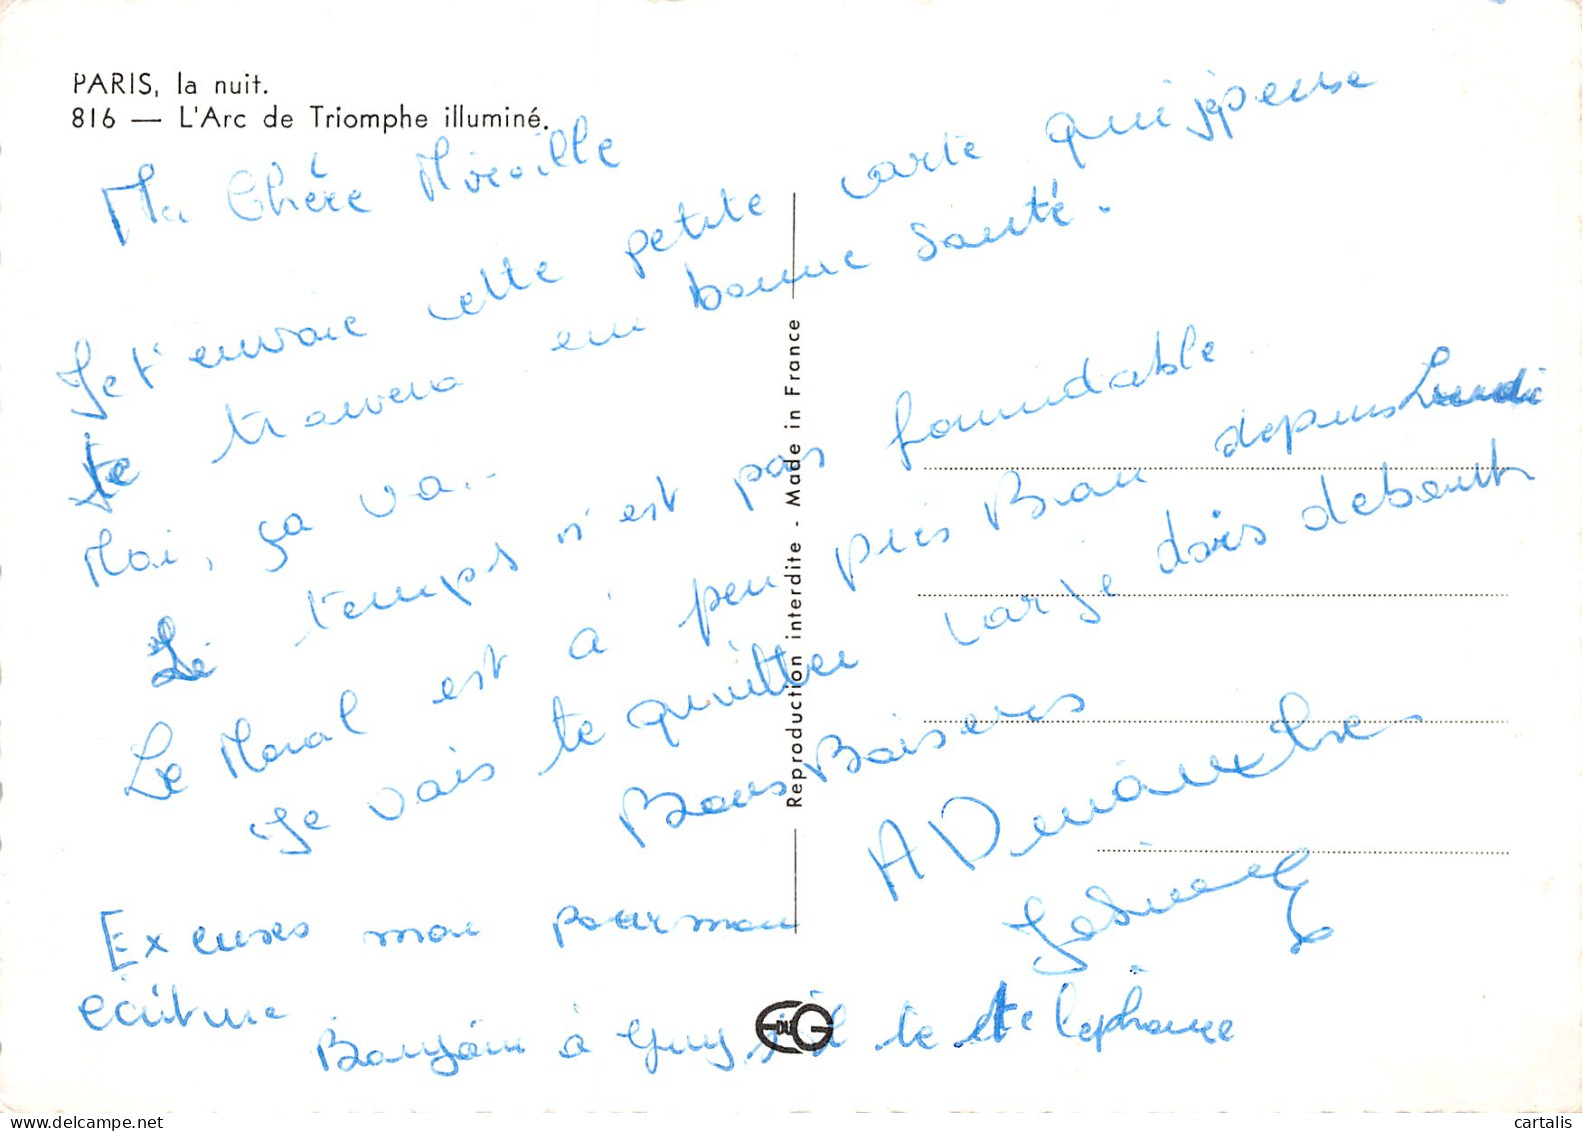 PARIS, la nuit.
816 — L'Arc de Triomphe illuminé.
Ma Chère Mireille
Je t'envoie cette petite carte qui jepense
te trouvera en bonne Santé.
Moi, ça va..
Le temps n'est pas formidable
Le Moral est à peu près Bon depuis Lundi
Je vais te quitter car je dois debout
Bons Baisers
A Dimanche
Excuses moi pour mon
écriture
Bonjour à Guy s'il te téléphone
Reproduction interdite - Made in France
EDUG
delcampe.net
cartalis